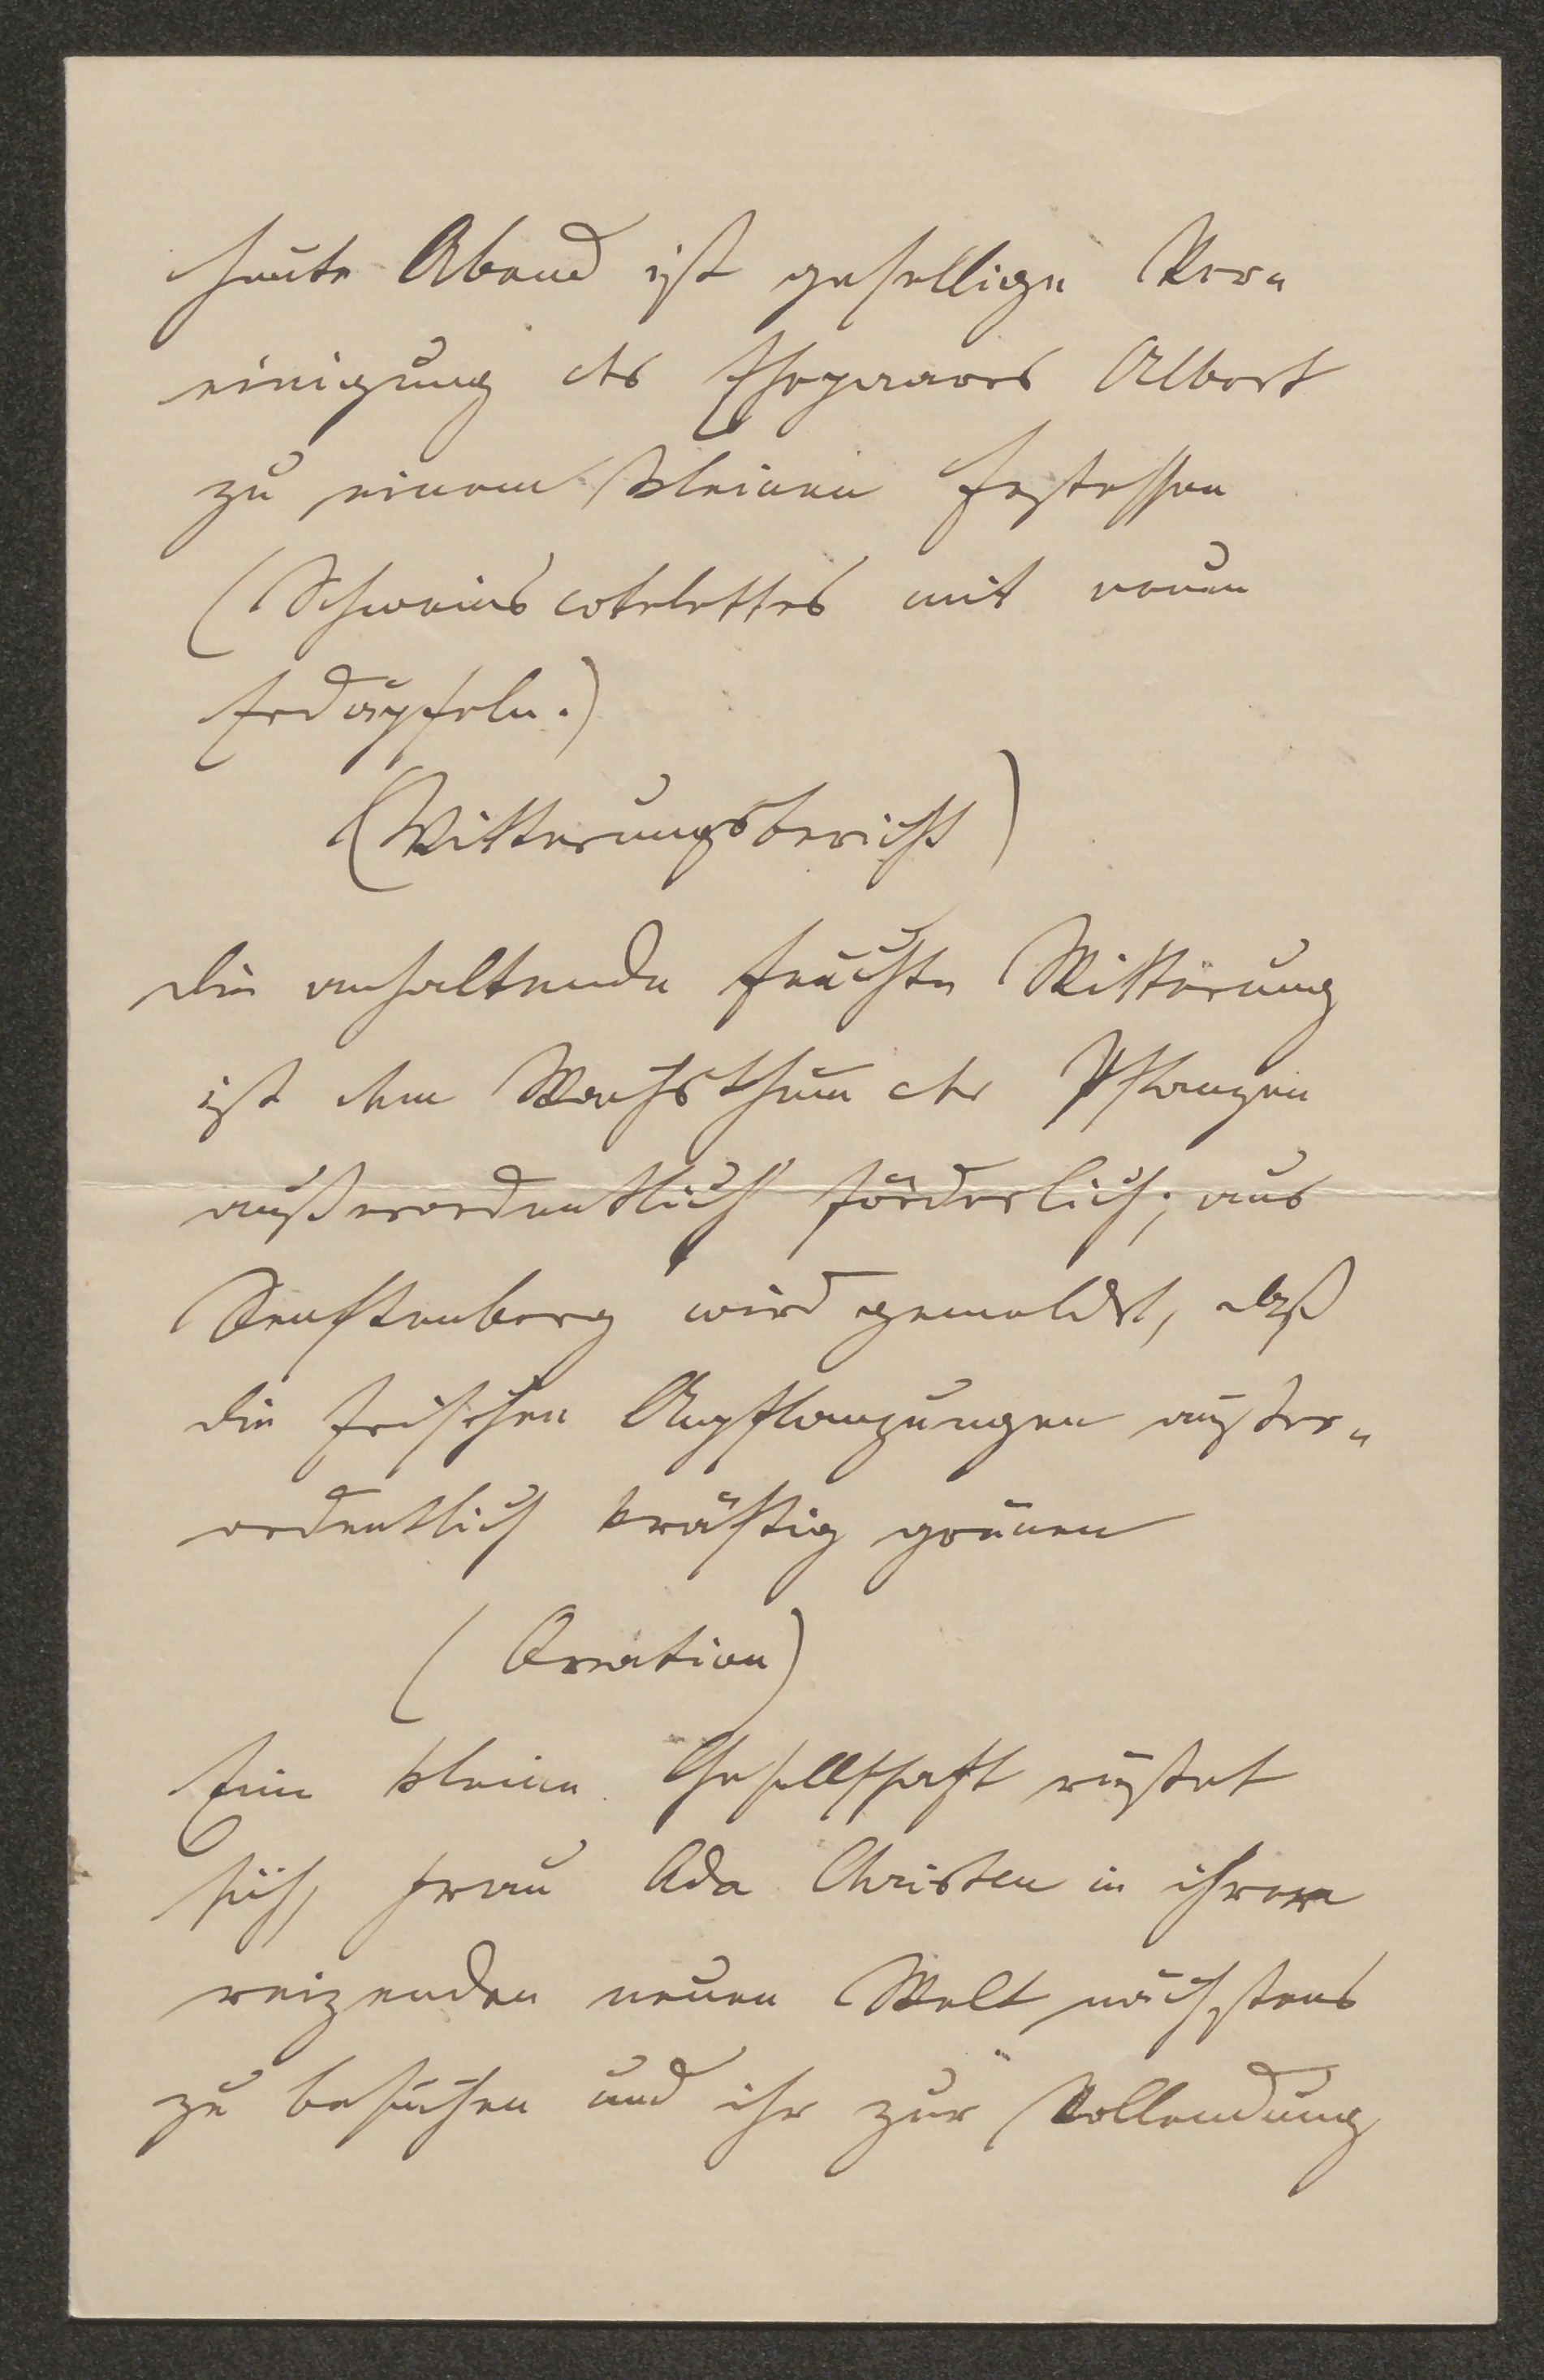 heute Abend ist gesellige Ver„
einigung des Ehepaares Albert
zu einem kleinen Festessen
(Schweinscotelettes mit neuen
Erdäpfeln.)
(Witterungsbericht)
Die anhaltende feuchte Witterung
ist dem Wachsthum der Pflanzen
außerordentlich förderlich; aus
Senftenberg wird gemeldet, daß
die frischen Anpflanzungen außer„
ordentlich kräftig grünen
(Ovation)
Eine kleine Gesellschaft rüstet
sich, Frau Ada Christen in ihrer
reizenden neuen Welt nächstens
zu besuchen und ihr zur Vollendung